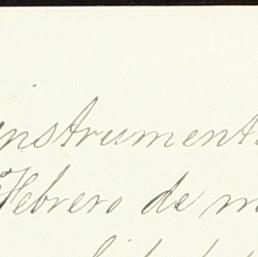 instrument
Febrero de m